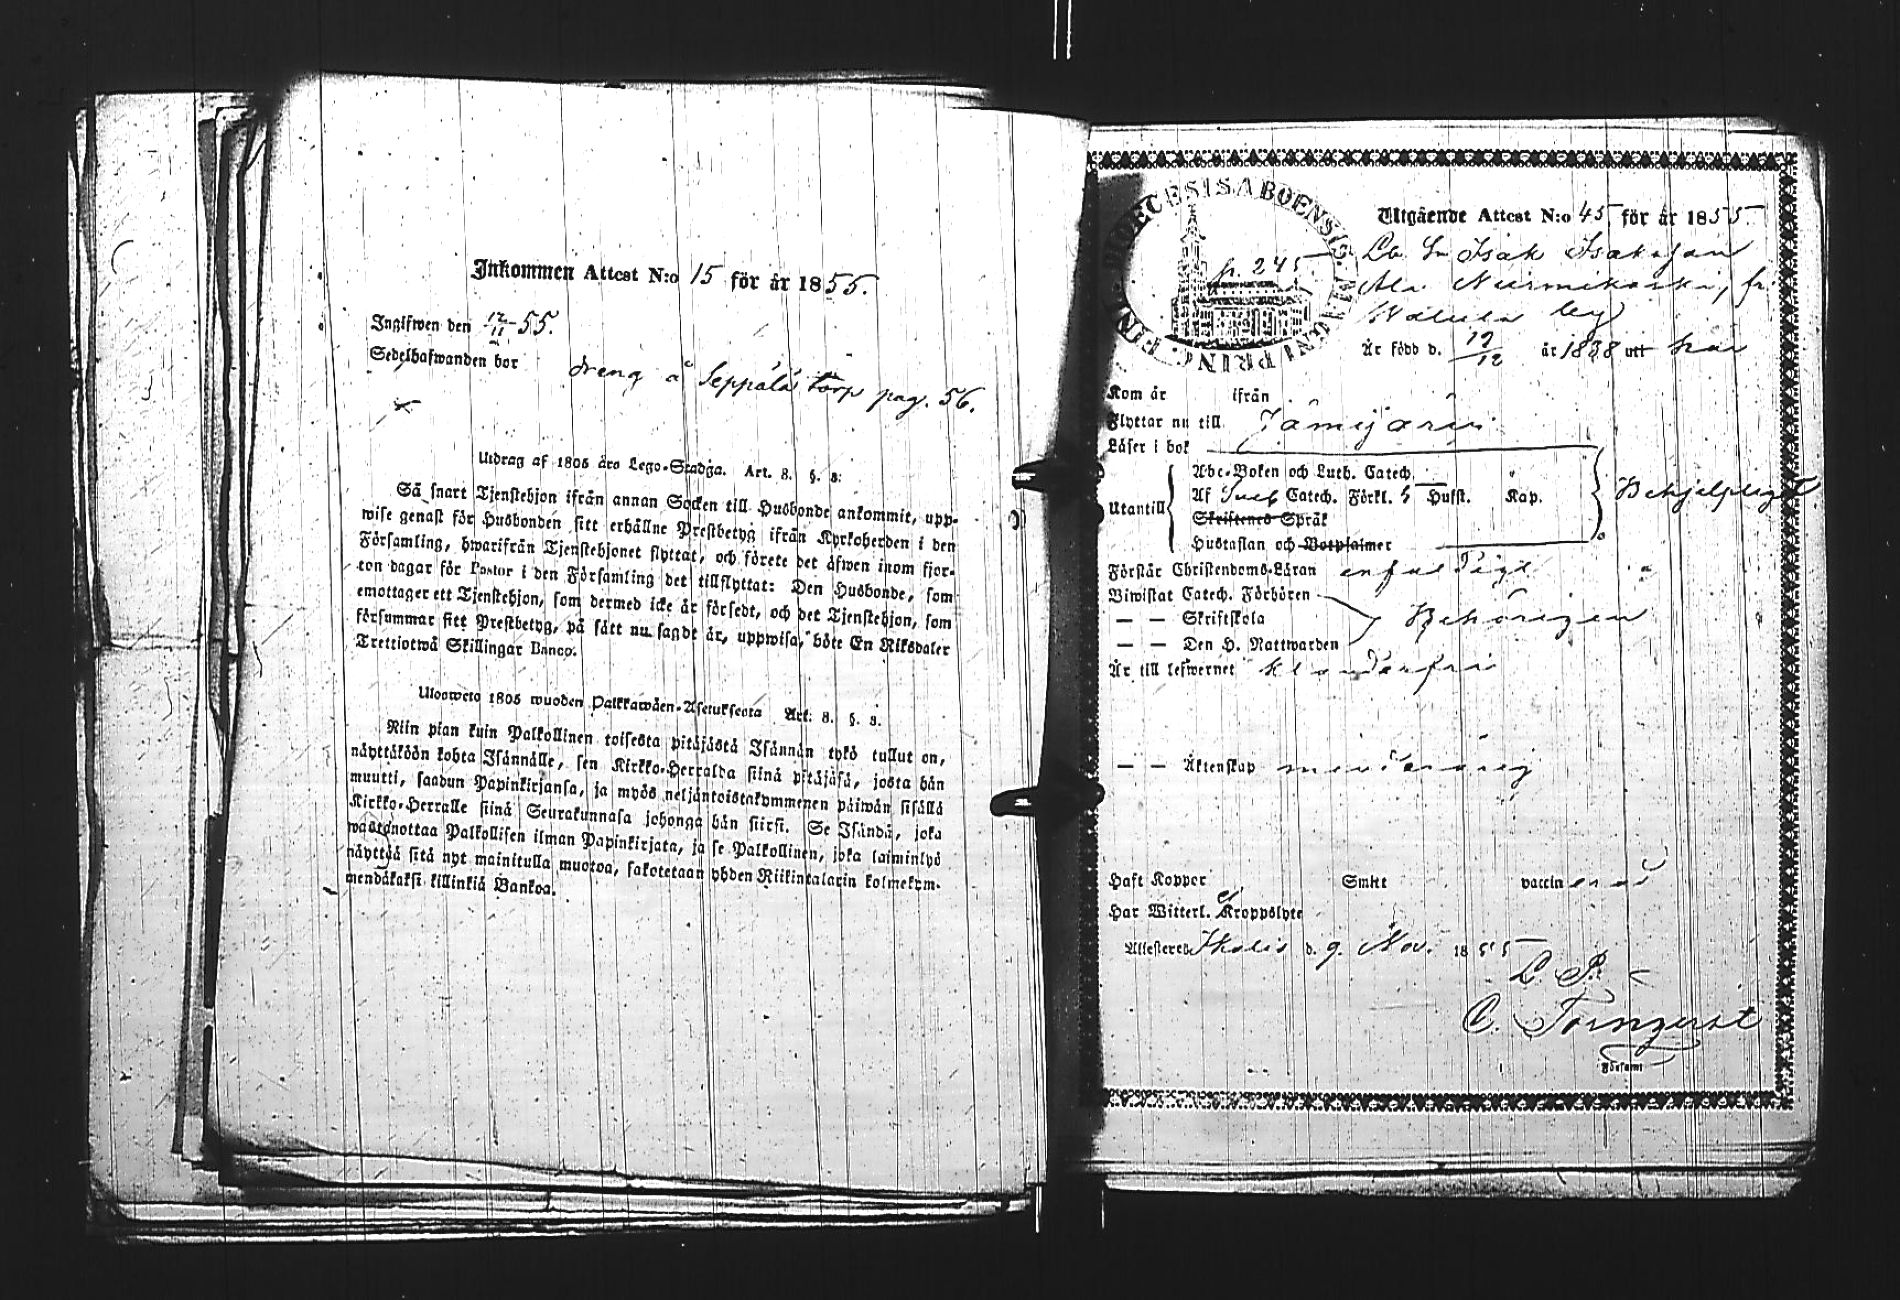 Inkommen Attest N:o 15 för år 1855.
Ingifwen den 12/11 55.
Sedelhafwanden bor dreng å Seppälä torp pag. 56.
Utdrag af 1805 års Lego-Stadga. Art. 8. §. 8:
Så snart Tjenstehjon ifrån annan Socken till Husbonde ankommit, upp-
wise genast för Husbonden sitt erhållne Prestbetyg ifrån Kyrkoherden i den
Församling, hwarifrån Tjenstehjonet flyttat, och förete det äfwen inom fjor-
ton dagar för Pastor i den Församling det tillflyttat: Den Husbonde, som
emottager ett Tjenstehjon, som dermed icke är försedt, och det Tjenstehjon, som
försummar sitt Prestbetyg, på sätt nu sagdt är, uppwisa, böte En Riksdaler
Trettiotwå Skillingar Banco.
Ulosweto 1805 wuoden Palkkawäen-Asetuksesta Art: 8. §. 8.
Niin pian kuin Palkollinen toisesta pitäjästä Isännän tykö tullut on,
näyttäköön kohta Isännälle, sen Kirkko-Herralda siinä pitäjäsä, josta hän
muutti, saadun Papinkirjansa, ja myös neljäntoistakymmenen päiwän sisällä
Kirkko-Herralle siinä Seurakunnasa johonga hän siirsi. Se Isändä, joka
wastanottaa Palkollisen ilman Papinkirjata, ja se Palkollinen, joka laiminlyö
näyttää sitä nyt mainitulla muotoa, sakotetaan yhden Riikintalarin kolmekym-
mendäkaksi killinkiä Bankoa.
DIOECESIS ABOENSIS
p. 245
Utgående Attest N:o 45 för år 1855
Isak Isaksson
Ala Niemikoski, fr.
by
Är född d. 19/12 år 1838 utt här
Kom år ifrån
Flyttar nu till Jämijärvi
Läser i bok
Utantill
Abc-Boken och Luth. Catech.
Af Sveb Catech. Förkl. 5 Hufst. Kap.
Skriftenes Språk
Hustaflan och Botpsalmer
Behjelpligt
Förstår Christendoms-Läran enfaldigt
Biwistat Catech. Förhören
— — Skriftskola
— — Den H. Nattwarden
Behörigen
Är till lefwernet klanderfri
— — Äktenskap minderårig
Haft Koppor Smitt vaccinerad
Har Witterl. ej Kroppslyte
Attesterar Ikalis d. 9. Nov. 1855
C. Törnqvist
Församl